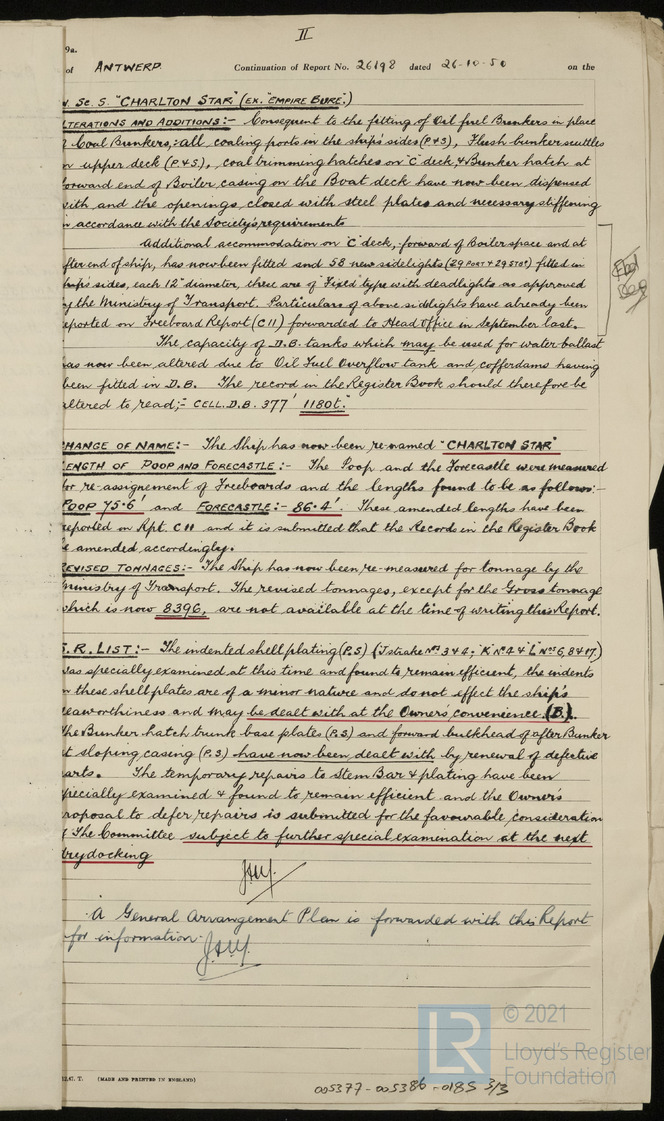 II
9a.
of ANTWERP. Continuation of Report No. 26198 dated 26-10-50 on the
. Sc. S. "CHARLTON STAR" (EX. "EMPIRE BURE".)
LTERATIONS AND ADDITIONS:- Consequent to the fitting of Oil fuel Bunkers in place
Coal Bunkers, all coaling ports in the ship's sides (P&S), Flush bunker scuttles
n upper deck (P.&S.), coal trimming hatches on "C" deck, & Bunker hatch at
forward end of Boiler casing on the Boat deck have now been dispensed
with and the openings closed with steel plates and necessary stiffening
n accordance with the Society's requirements
Additional accommodation on "C" deck, forward of Boiler space and at
fter end of ship, has now been fitted and 58 new sidelights (29 PORT & 29 STBD) fitted in
hip's sides, each 12" diameter, these are of "Fixed" type with deadlights as approved
y the Ministry of Transport. Particulars of above sidelights have already been
eported on Freeboard Report (C11) forwarded to Head Office in September last.
The capacity of D.B. tanks which may be used for water ballast
as now been altered due to Oil Fuel Overflow tank and cofferdams having
been fitted in D.B. The record in the Register Book should therefore be
altered to read;- CELL.D.B. 377' 1180t."
HANGE OF NAME:- The Ship has now been re-named "CHARLTON STAR"
ENGTH OF POOP AND FORECASTLE:- The Poop and the Forecastle were measured
for re-assignment of Freeboards and the lengths found to be as follows:-
POOP 75·6' and FORECASTLE:- 86·4'. These amended lengths have been
reported on Rpt. C11 and it is submitted that the Records in the Register Book
be amended accordingly.
REVISED TONNAGES:- The Ship has now been re-measured for tonnage by the
Ministry of Transport. The revised tonnages, except for the Gross tonnage
which is now 8396, are not available at the time of writing this Report.
S.R. LIST:- The indented shell plating (P.S) (J strake Nos 3 & 4; "K" No 4 & "L" Nos 6, 8 & 17)
was specially examined at this time and found to remain efficient, the indents
n these shell plates are of a minor nature and do not effect the ship's
eaworthiness and may be dealt with at the Owner's convenience. (B).
The Bunker hatch trunk base plates (P.S) and forward bulkhead of after Bunker
at sloping casing (P.S.) have now been dealt with by renewal of defective
arts. The temporary repairs to Stem Bar & plating have been
specially examined & found to remain efficient and the Owner's
proposal to defer repairs is submitted for the favourable consideration
f The Committee subject to further special examination at the next
drydocking
A General Arrangement Plan is forwarded with this Report
for information.
C. T. (MADE AND PRINTED IN ENGLAND)
005377-005386-0185 3/3
LR
© 2021
Lloyd's Register
Foundation